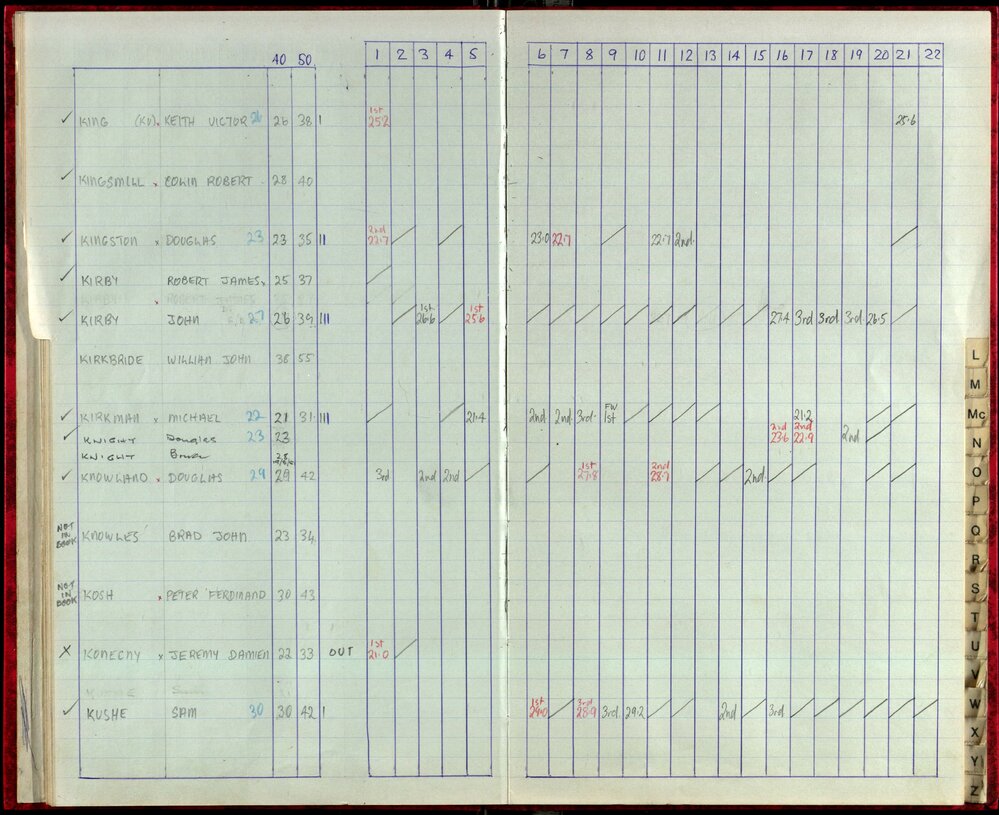 40 50 1 2 3 4 5 6 7 8 9 10 11 12 13 14 15 16 17 18 19 20 21 22
1st
✓ KING (KV) x KEITH VICTOR 26 26 38 I 25.2 25.6
✓ KINGSMILL x COLIN ROBERT 28 40
2nd
✓ KINGSTON x DOUGLAS 23 23 35 II 22.7 / / 23.0 22.7 / 22.7 2nd /
✓ KIRBY ROBERT JAMES x 25 37 /
KIRBY x ROBERT JAMES
1st 1st
✓ KIRBY JOHN 27 26 39 III / 26.6 / 25.6 / / / / / / / / / / 27.4 3rd 3rd 3rd 26.5 /
KIRKBRIDE WILLIAN JOHN 36 55
FW 21.2
✓ KIRKMAN x MICHAEL 22 21 31 III / / 21.4 2nd 2nd 3rd 1st / / / / / /
2nd 2nd
✓ KNIGHT Douglas 23 23 23.6 22.9 2nd /
KNIGHT Bruce 28
1st 2nd
✓ KNOWLAND x DOUGLAS 29 29 42 3rd 2nd 2nd / / 27.8 28.7 / / 2nd / /
NOT IN BOOK KNOWLES BRAD JOHN 23 34
NOT IN BOOK KOSH x PETER FERDINAND 30 43
1st
X KONECNY x JEREMY DAMIEN 22 33 OUT 21.0 /
1st 3rd
✓ KUSHE SAM 30 30 42 I 29.0 / 28.9 3rd 29.2 / / 2nd / 3rd / / / / / /
L
M
Mc
N
O
P
Q
R
S
T
U
V
W
X
Y
Z